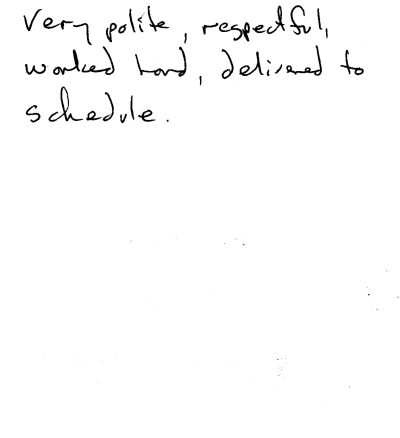 Very polite, respectful,
worked hard, delivered to
schedule.